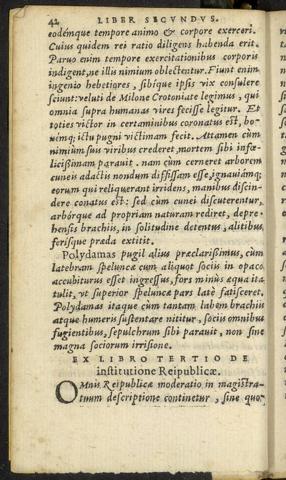 42 LIBER SECVNDVS.
eodémque tempore animo & corpore exerceri.
Cuius quidem rei ratio diligens habenda erit.
Paruo enim tempore exercitationibus corporis
indigent, ne illis nimium oblectentur. Fiunt enim
ingenio hebetiores, sibique ipsis vix consulere
sciunt: veluti de Milone Crotoniate legimus, qui
omnia supra humanas vires fecisse legitur. Et
toties victor in certaminibus coronatus est, bo-
uémq; ictu pugni victimam fecit. Attamen cùm
nimiùm suis viribus crederet, mortem sibi infœ-
licißimam parauit. nam cùm cerneret arborem
cuneis adactis nondum diffissam esse, ignauiámq;
eorum qui reliquerant irridens, manibus discin-
dere conatus est: sed cùm cunei discuterentur,
arbórque ad propriam naturam rediret, depre-
hensis brachiis, in solitudine detentus, alitibus,
ferisque præda extitit.
Polydamas pugil alius præclarißimus, cùm
latebram speluncæ cum aliquot sociis in opaco
accubiturus esset ingressus, fors minùs æqua ita
tulit, vt superior speluncæ pars latè fatisceret.
Polydamas itaque cùm tantam labem brachiis
atque humeris sustentare nititur, sociis omnibus
fugientibus, sepulchrum sibi parauit, non sine
magna sociorum irrisione.
EX LIBRO TERTIO DE
institutione Reipublicæ.
OMnis Reipublicæ moderatio in magistra-
tuum descriptione continetur, sine quor